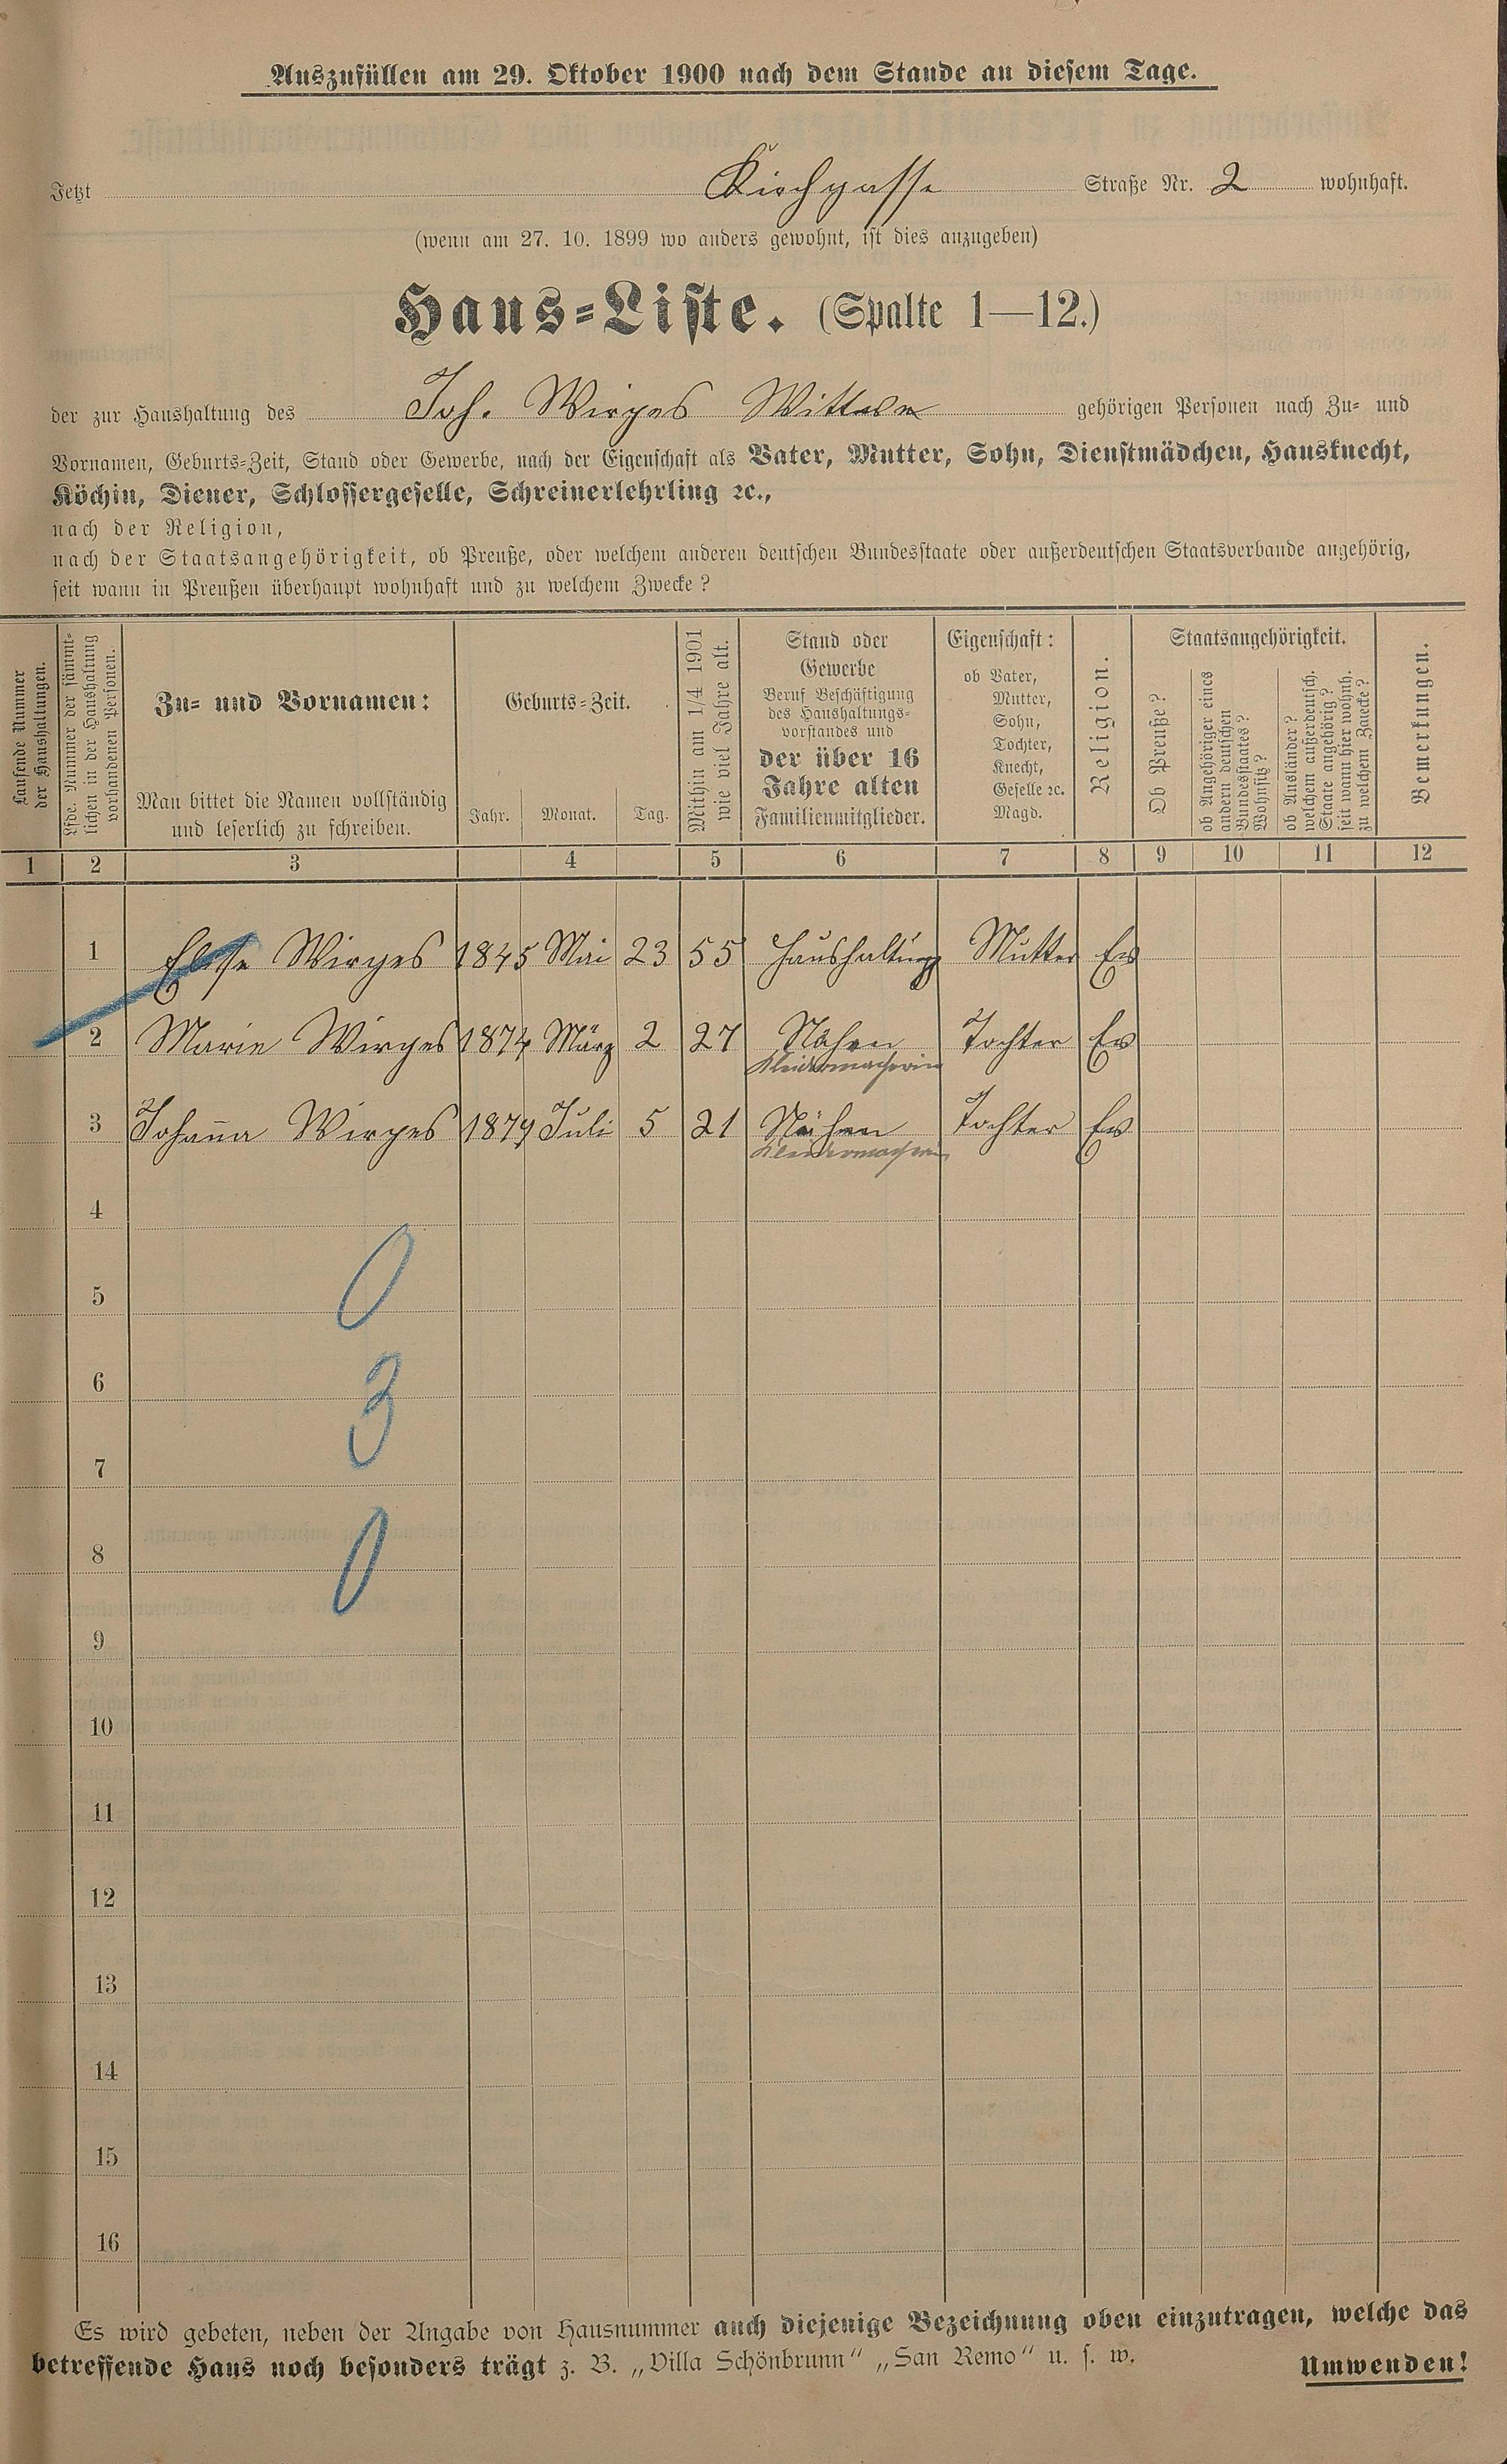 Auszufüllen am 29. Oktober 1900 nach dem Stande an diesem Tage.
Jetzt Kirchgasse Straße Nr. 2 wohnhaft.
(wenn am 27. 10. 1899 wo anders gewohnt, ist dies anzugeben)
Haus-Liste. (Spalte 1—12.)
der zur Haushaltung des Joh. Wirges gehörigen Personen nach Zu- und
Vornamen, Geburts-Zeit, Stand oder Gewerbe, nach der Eigenschaft als Vater, Mutter, Sohn, Dienstmädchen, Hausknecht,
Köchin, Diener, Schlossergeselle, Schreinerlehrling ꝛc.,
nach der Religion,
nach der Staatsangehörigkeit, ob Preuße, oder welchem anderen deutschen Bundesstaate oder außerdeutschen Staatsverbande angehörig,
seit wann in Preußen überhaupt wohnhaft und zu welchem Zwecke?
Laufende Nummer
der Haushaltungen.
Lfde. Nummer der sämmt-
lichen in der Haushaltung
vorhandenen Personen.
Zu- und Vornamen:
Man bittet die Namen vollständig
und leserlich zu schreiben.
Geburts-Zeit.
Jahr. Monat. Tag.
Mithin am 1/4 1901
wie viel Jahre alt.
Stand oder
Gewerbe
Beruf Beschäftigung
des Haushaltungs-
vorstandes und
der über 16
Jahre alten
Familienmitglieder.
Eigenschaft:
ob Vater,
Mutter,
Sohn,
Tochter,
Knecht,
Geselle ꝛc.
Magd.
Religion.
Staatsangehörigkeit.
Ob Preuße?
ob Angehöriger eines
andern deutschen
Bundesstaates?
Wohnsitz?
ob Ausländer?
welchem außerdeutsch.
Staate angehörig?
seit wann hier wohnh.
zu welchem Zwecke?
Bemerkungen.
1 2 3 4 5 6 7 8 9 10 11 12
1 Elise Wirges 1845 Mai 23 55 Haushaltung Mutter Ev
2 Marie Wirges 1874 März 2 27 Nähen Tochter Ev
Kleidermacherin
3 Johanna Wirges 1879 Juli 5 21 Nähen Tochter Ev
Kleidermacherin
4
0
5
6
3
7
8
0
9
10
11
12
13
14
15
16
Es wird gebeten, neben der Angabe von Hausnummer auch diejenige Bezeichnung oben einzutragen, welche das
betreffende Haus noch besonders trägt z. B. „Villa Schönbrunn" „San Remo" u. s. w.
Umwenden!